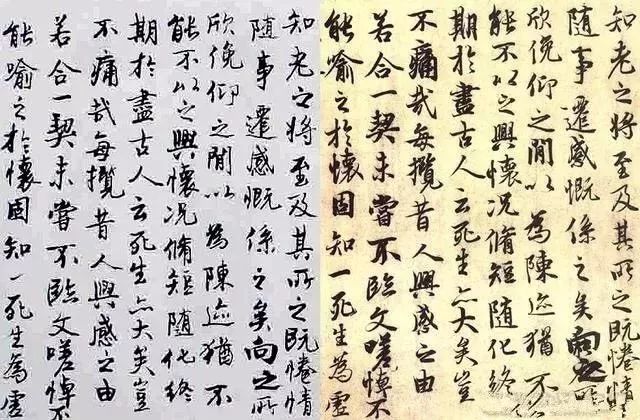 知老之将至及其所之既惓情
随事遷感慨係之矣向之所
欣俛仰之間以為陳迹猶不
能不以之興懷况脩短随化終
期於盡古人云死生亦大矣豈
不痛哉每攬昔人興感之由
若合一契未嘗不臨文嗟悼不
能喻之於懷固知一死生為虛
知老之将至及其所之既惓情
随事遷感慨係之矣向之所
欣俛仰之間以為陳迹猶不
能不以之興懷况脩短随化終
期於盡古人云死生亦大矣豈
不痛哉每攬昔人興感之由
若合一契未嘗不臨文嗟悼不
能喻之於懷固知一死生為虛